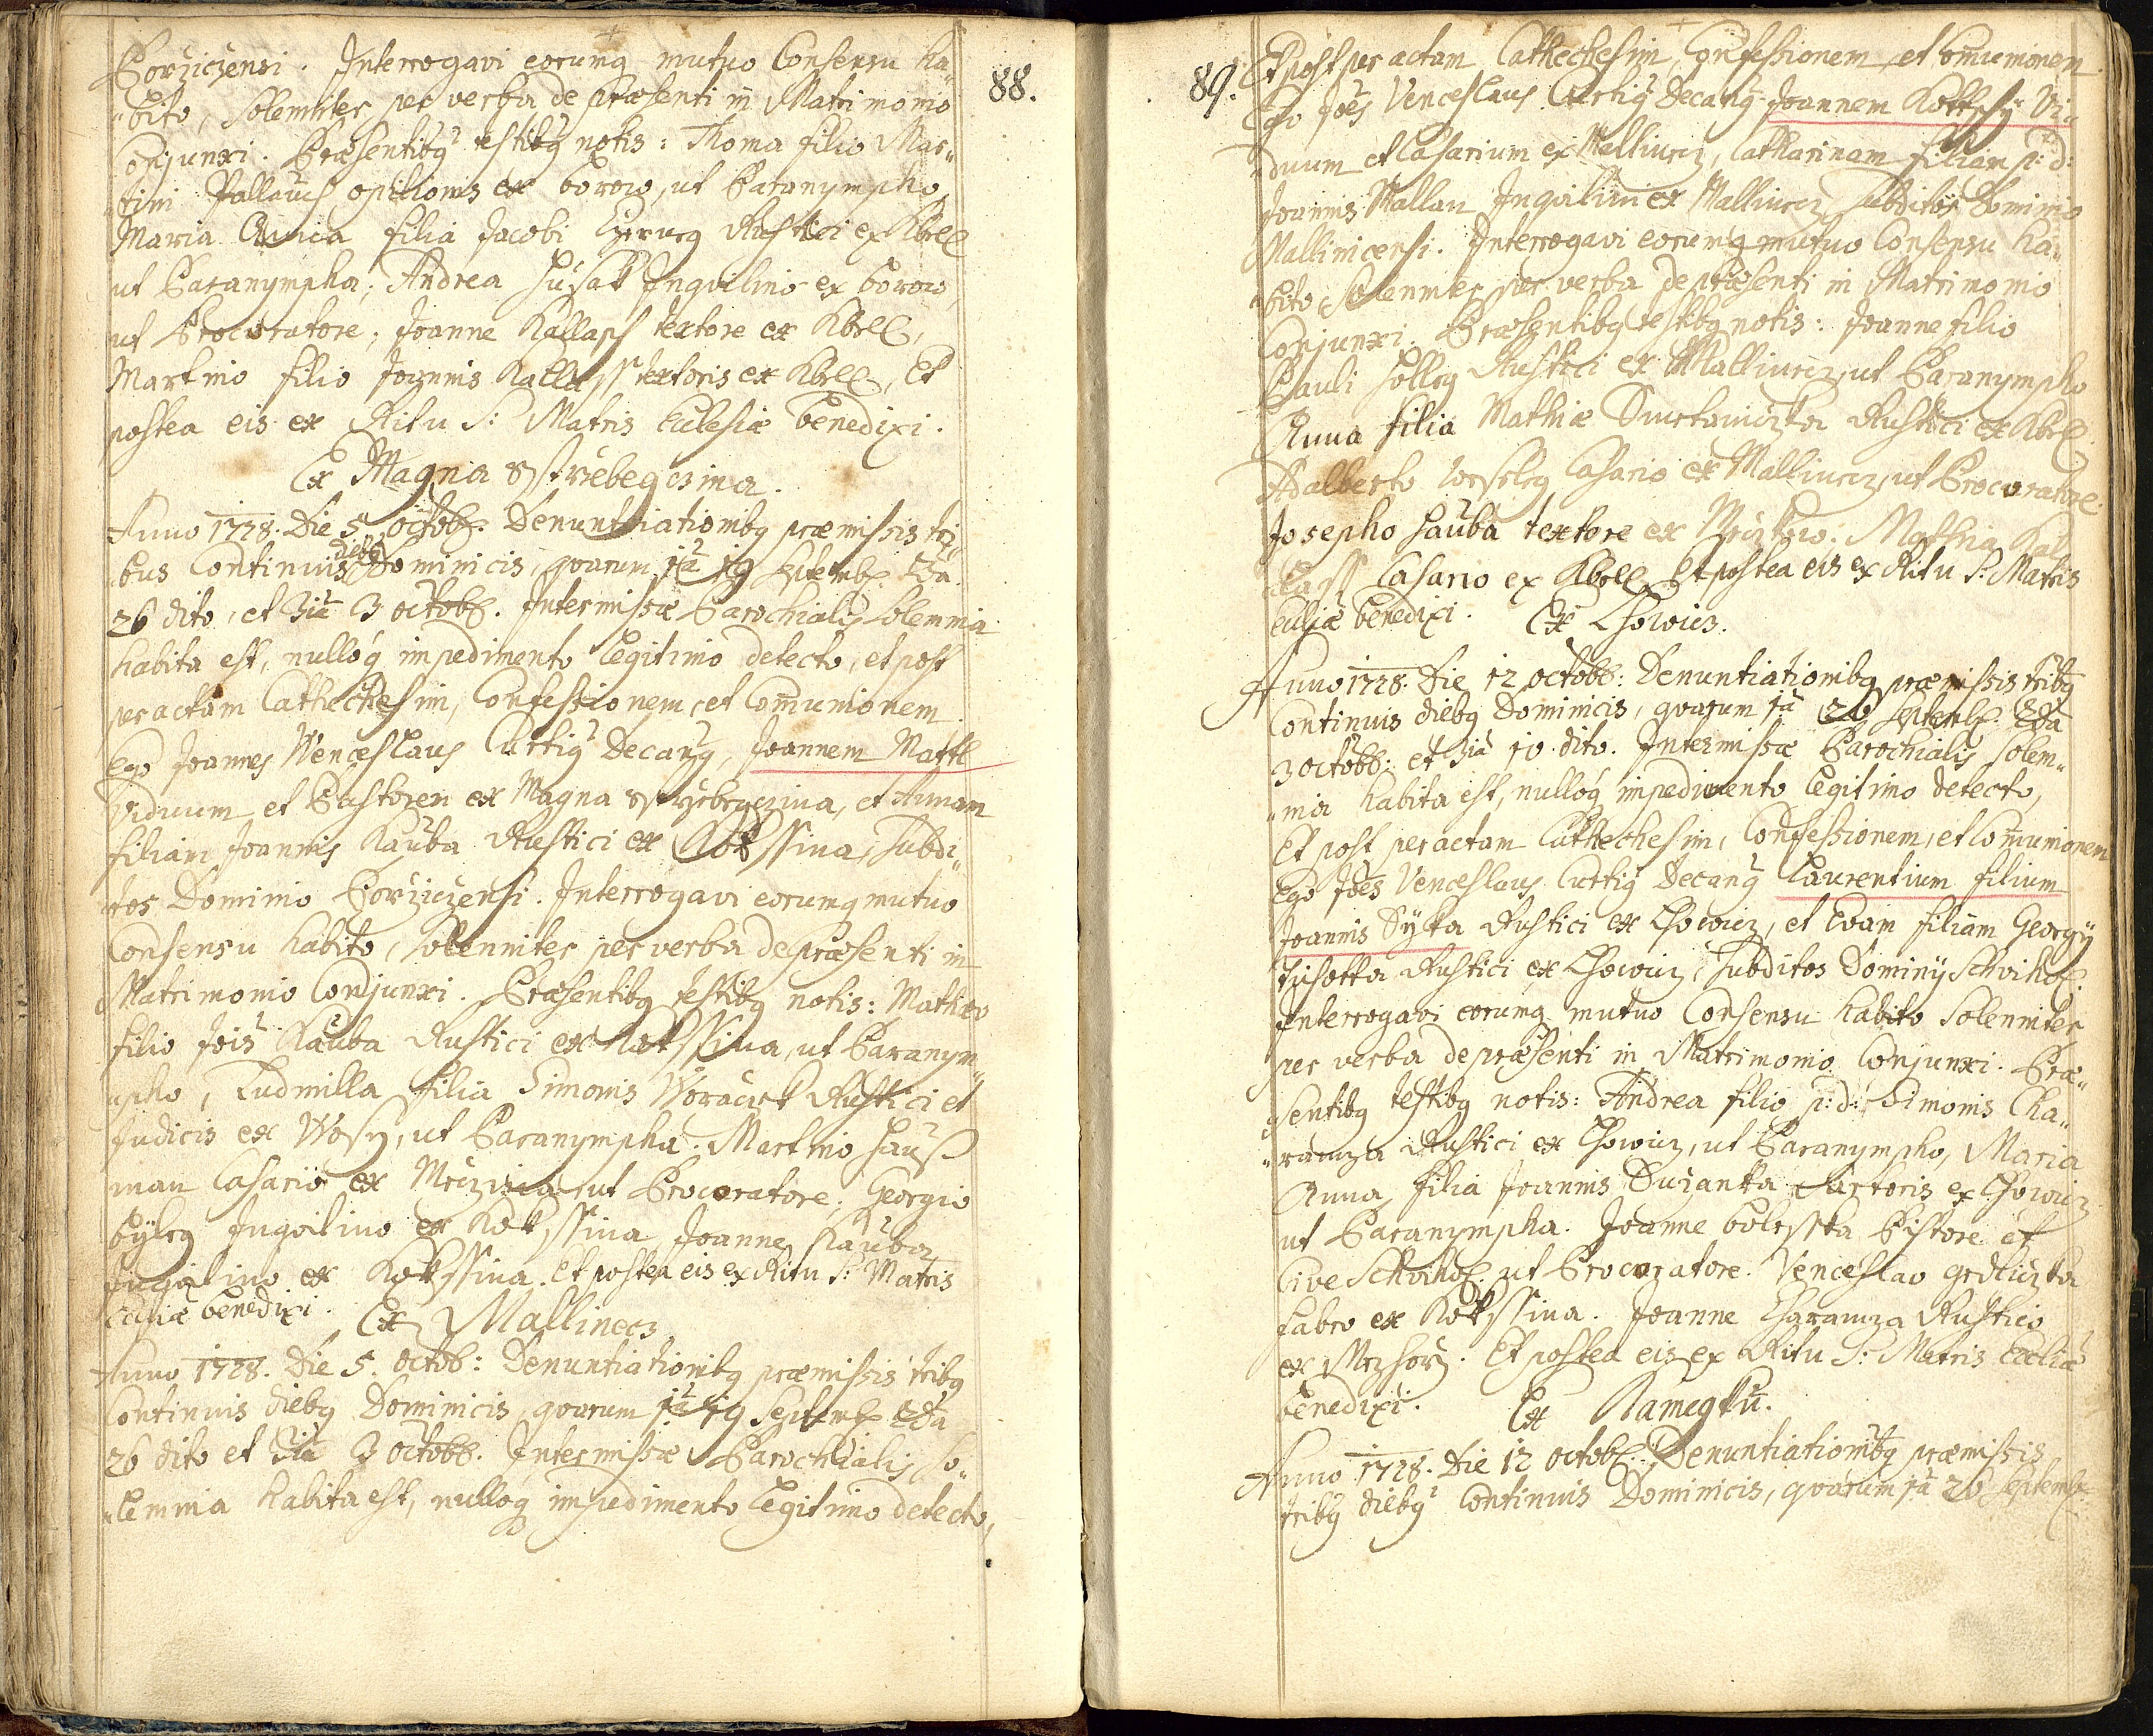 88.
Porziczensi. Interrogavi eorumq mutuo Consensu ha„
„bito, Solemniter per verba de præsenti in Matrimonio
Conjunxi. Præsentibq testibq notis: Thoma filio Mar„
„tini Pallausch opilionis ex Borow, ut Paranympho,
Maria Anna filia Jacobi Rustici ex Kbell
ut Paranympha, Andrea Husak Inquilino ex Borow,
ut Procuratore, Joanne Kallasch textore ex Kbell,
Martino filio Joannis Kallass textoris ex Kbell, Et
postea eis ex Ritu S: Matris Eclesiæ benedixi.
Ex Magna
Anno 1728. Die 5 octob. Denuntiationibq præmissis tri„
„bus Continuis diebq Dominicis, quarum 1a 19 Septemb 2da
26 dito, et 3ia 3 octob. Inter missæ Parochialis Solemnia
habita est, nulloq impedimento legitimo detecto, et post
peractam Cathechesim, Confessionem, et Comunionem
Ego Joannes Wenceslaus Curtiq Decanq, Joannem Mattl
Viduum et Pastorem ex Magna et Annam
filiam Joannis Kauba Rustici ex Kokssina, Subdi„
tos Dominio Porziczensi. Interrogavi eorumq mutuo
Consensu habito, Solenniter per verba de præsenti in
Matrimonio Conjunxi. Præsentibq testibq notis: Mathæo
filio Jois Kauba Rustici ex Kokssina, ut Paranym„
„pho, Ludmilla filia Simonis Woraczek Rustici et
Judicis ex Wosy, ut Paranympha, Martino Haus„
man Casario ex ut Procuratore, Georgio
Bileg Inquilino ex Kokssina, Joanne Kauba
Inquilino ex Kokssina. Et postea eis ex Ritu S: Matris
Ecliæ benedixi. Ex Mallinecz
Anno 1728. Die 5. octob: Denuntiationibq præmissis tribq
Continuis diebq Dominicis, quarum 1a 19 Septemb 2da
26 dito et 3ia 3 octobb. Inter missæ Parochialis So„
„lemnia habita est, nulloq impedimento legitimo detecto,
89.
Et post peractam Cathechesim, Confessionem, et Comunionem
Ego Joes Venceslaus Curtiq Decanq Joannem Vi„
„duum et Casarium ex Mallinecz, Catharinam filiam p: d:
Joannis Mallan Inquilini ex Mallinecz Subditos Dominio
Mallinicensi. Interrogavi eorumq mutuo Consensu ha„
„bito Solenniter per verba de præsenti in Matrimonio
Conjunxi. Præsentibq testibq notis: Joanne filio
Pauli Holleg Rustici ex Mallinecz, ut Paranympho
Anna filia Mathiæ Rustici ex Kbell
Adalberto Wesseleg Casario ex Mallinecz, ut Procuratore.
Josepho Hauba textore ex Mathia Kal„
„lass Casario ex Kbell. Et postea eis ex Ritu S: Matris
Ecliæ benedixi. Ex Chowicz.
Anno 1728. Die 12 octobb: Denuntiationibq præmissis tribq
Continuis diebq Dominicis, quarum 1a 26 Septemb. 2da
3 octobb: et 3ia 10 dito. Inter missæ Parochialis Solem„
„nia habita est, nulloq impedimento legitimo detecto,
Et post peractam Cathechesim, Confessionem, et Comunionem
Ego Joes Venceslaus Curtiq Decanq Laurentium filium
Joannis Syka Rustici ex Chowicz, et Evam filiam Georgij
Rustici ex Chowicz, Subditos Dominij Schvihof.
Interrogavi eorumq mutuo Consensu habito Solenniter
per verba de præsenti in Matrimonio Conjunxi. Præ„
„sentibq testibq notis: Andrea filio p: d: Simonis Cha„
„ramza Rustici ex Chowicz, ut Paranympho, Maria
Anna filia Joannis Duzanka Sartoris ex Chowicz
ut Paranympha. Joanne Bolesska Pistore et
Cive Schvihof. ut Procuratore. Venceslao
fabro ex Kokssina. Joanne Charamza Rustico
ex Mezhorz. Et postea eis ex Ritu S: Matris Ecliæ
benedixi. Ex Kamegku.
Anno 1728. Die 12 octob. Denuntiationibq præmissis
tribq diebq Continuis Dominicis, quarum 1a 26 Septemb.